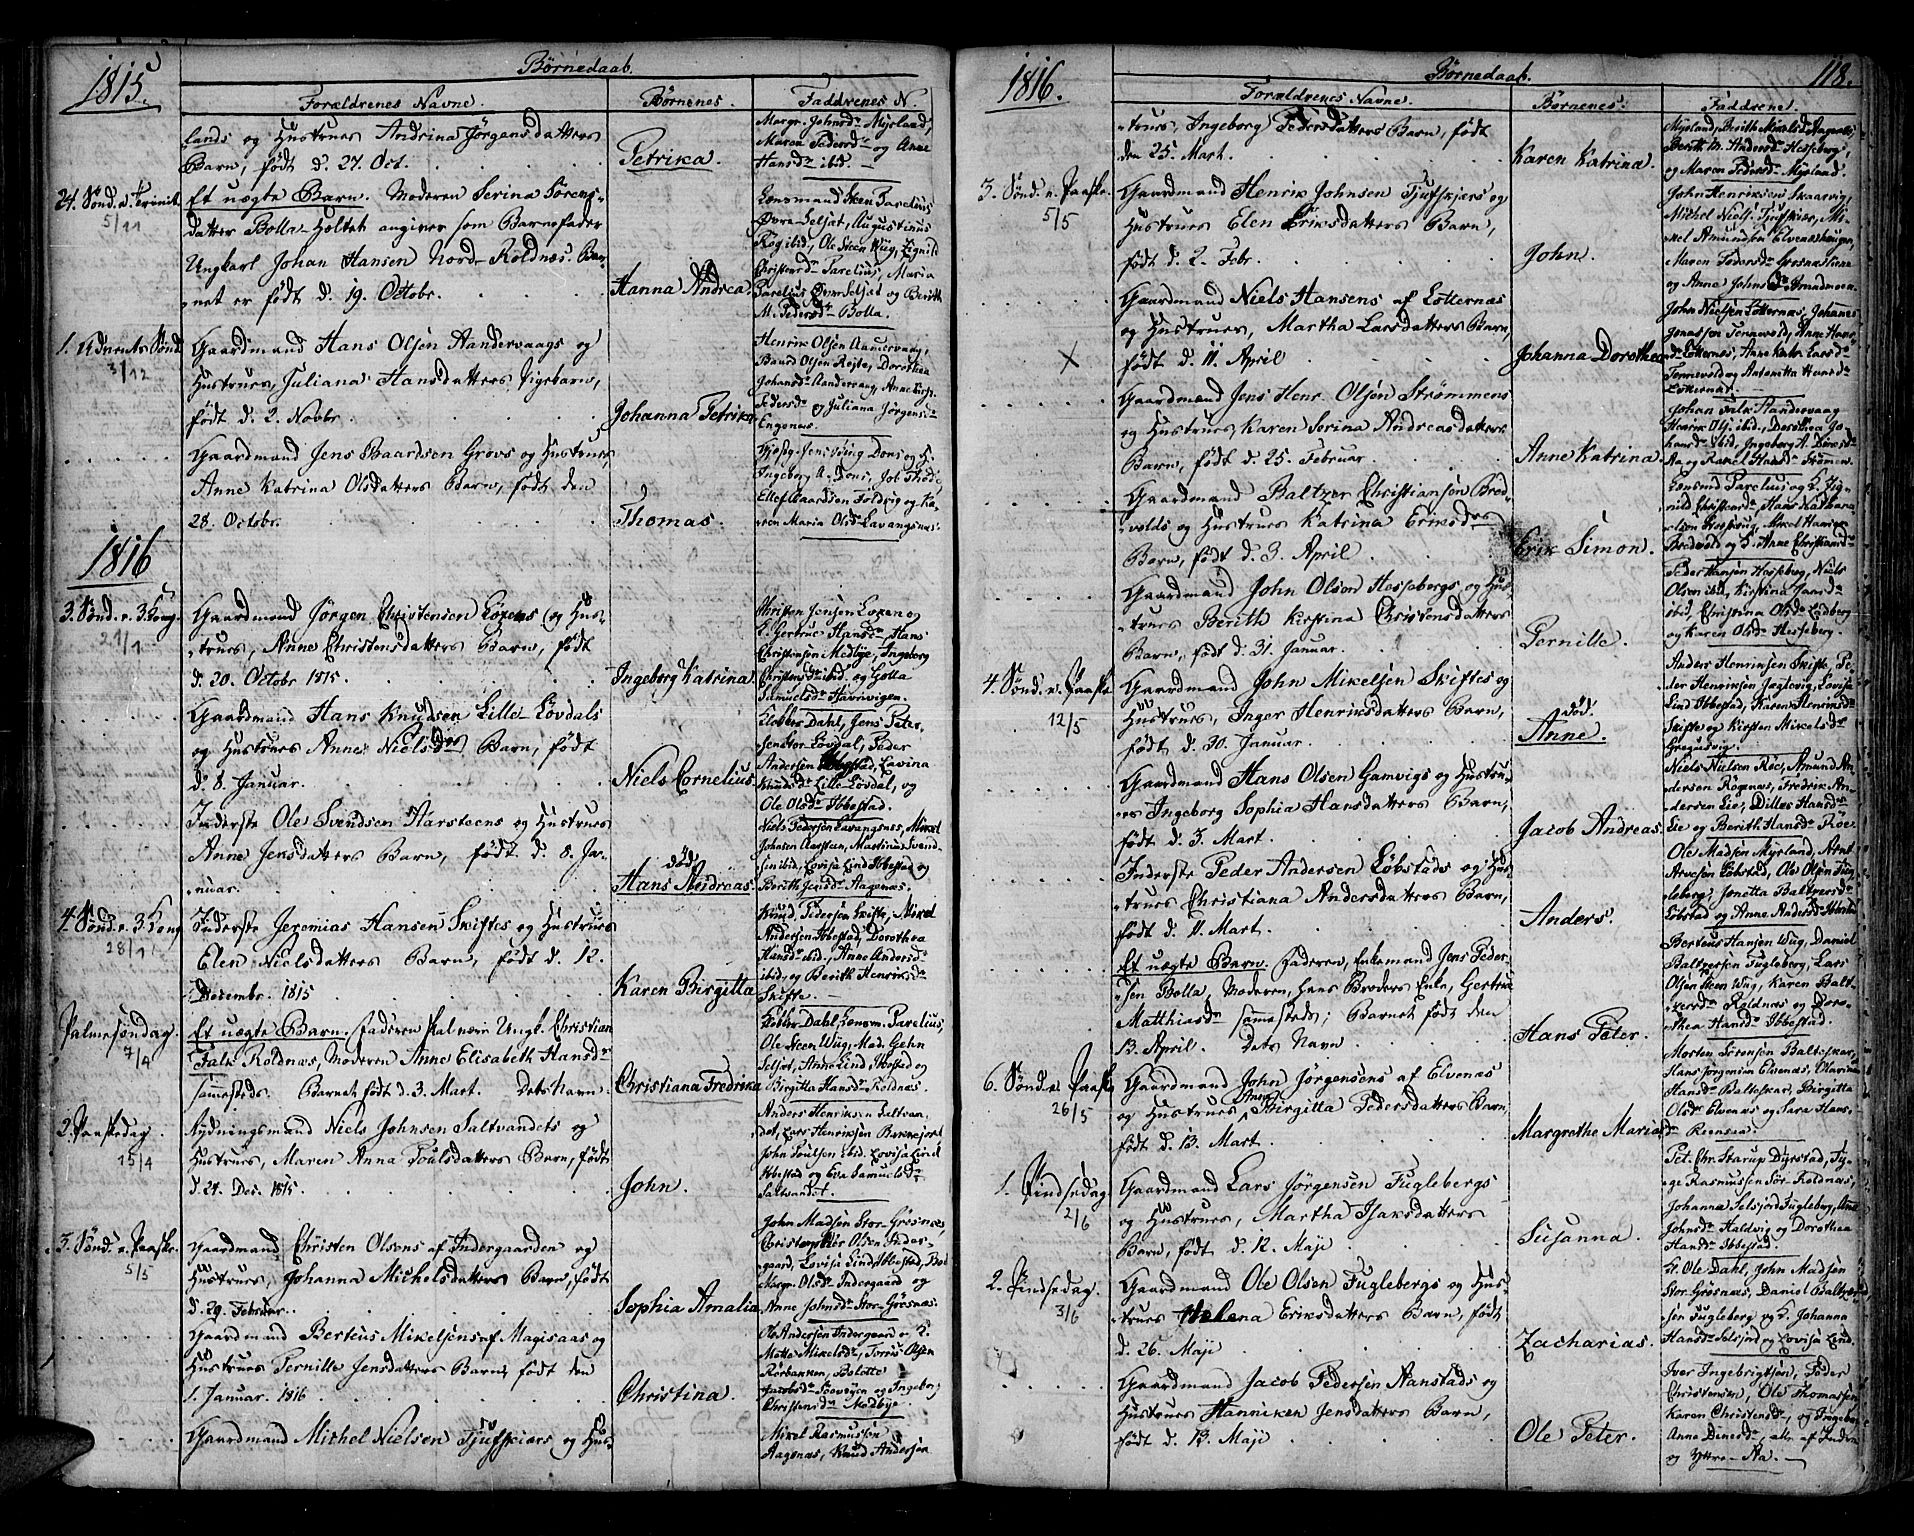 1815.
Børnedaab.
Forældrenes Navne.
Børnenes.
Faddrenes N.
lands og Hustrues Andrina Jörgensdatters
Barn, født d. 27. Oct.
Petrika.
Margr. Johnsdr Myrland,
Maren Pedersdr og Anne
Hansdr ibid.
24. Sönd. e. Trinit.
5/11
Et uægte Barn. Moderen Serina Sörens-
datter Bolla-Hæltet angiver som Barnefader
Ungkarl Johan Hansen Nord-Roldnæs. Bar-
net er født d. 19. Octobr.
Hanna Andrea.
Lensmand Steen Parelius
Øvre Selset, Augustinus
ibid, Ole Steen Wug, Signild
Christensdr Parelius, Maria
Parelius Øvre Selset og Berith
M. Pedersdr Bolla.
1. Advents Sönd.
3/12
Gaardmand Hans Olsen Aandervaags og
Hustrues, Juliana Hansdatters Pigebarn,
født d. 2. Novbr.
Johanna Petrika
Henrik Olsen Aandervaag,
Baard Olsen Røjte, Dorothea
Johansdr Aandervaag, Anne Kirst.
Pedersdr og Juliana Jörgensdr
Engenæs.
Gaardmand Jens Baardsen Grovs og Hustrues,
Anne Katrina Olsdatters Barn, født den
28. Octobr.
Thomas.
Jens Wing Dons og H.
Ingeborg A. Dons, Job Thode,
Ellef Baardsen Foldvig og Ka-
ren Maria Olsdr Lavangsnæs.
1816
3. Sönd. e. 3 Kong.
21/1
Gaardmand Jørgen Christensen Löxens og Hus-
trues, Anne Christensdatters Barn, født
d. 20. Octobr 1815.
Ingeborg Katrina.
Christen Jensen Loxen og
H. Gertrue Hansdr, Hans
Christensen Medbye, Ingeborg
Christensdr ibid. og Golla
Samuelsdr Havnvigen.
Gaardmand Hans Knudsen Lille-Lövdals
og Hustrues Anne Nielsdrs Barn, født
d. 8. Januar.
Niels Cornelius.
Klokker Dahl, Jens Peter-
sen Stor-Lovdal, Peder
Andersen Ibbestad, Lavina
Knudsdr Lille-Lovdal, og
Ole Olsdr Ibbestad.
Inderste Ole Svendsen Aarsteens og Hustrues
Anne Jensdatters Barn, født d. 8. Ja-
nuar.
død
Hans Andreas.
Niels Pedersen Lavangsnæs, Mikel
Johnsen Aarsteen, Martina Svend-
sen ibid, Lovisa Lind Ibbestad og
Berith Jensdr Aagenæs.
4. Sönd. e. 3 Kong.
28/1
Inderste Jeremias Hansen Skiftes og Hustrues
Elen Nielsdatters Barn, født d. 12.
Decembr. 1815
Karen Birgitta
Knud Pedersen Skifte, Mikel
Andersen Ibbestad, Dorothea
Hansdr ibid., Anne Andersdr
ibid og Berith Henriksdr
Skifte.
Palmesöndag.
7/4
Et uægte Barn. Faderen Ungk. Christian
Falk Roldnæs, Moderen Anne Elisabeth Hansdr
sammesteds. Barnet født d. 3. Mart. Dets Navn
Christiana Fredrika
Klokker Dahl, Lensm. Parelius,
Ole Steen Wug, Mad. Gehn
Selset, Anne Lind Ibbestad og
Birgitta Hansdr Roldnæs.
2. Paaskedag.
15/4
Rydningsmand Niels Johnsen Saltvandets og
Hustrues, Maren Anna Poulsdatters Barn, født
d. 27. Dec. 1815.
John.
Anders Henriksen Saltvan-
det, Lars Henriksen Bakkejord
John Poulsen ibid. Lovisa Lind
Ibbestad og Eva Samuelsdr
Saltvandet.
3. Sönd. e. Paaske.
5/5
Gaardmand Christen Olsens af Indergaarden og
Hustrues, Johanna Michelsdatters Barn, født
d. 29. Februar.
Sophia Amalia
John Madsen Stor-Grøsnæs,
Christopher Olsen Inder-
gaard, Lovisa Lind Ibbestad,
Margr. Olsdr Indergaard og
Anne Johnsdr Stor-Grøsnæs.
Gaardmand Berteus Mikelsens af Magisaas og
Hustrues Pernille Jensdatters Barn, født den
1. Januar. 1816
Christina.
Ole Andersen Indergaard og H.
Mette Mikelsdr, Torris Olsen
Rørbakken, Bolette
Jacobsdr og Ingeborg
Christensdr Medbye.
Gaardmand Michel Nielsen Tjufskiærs og Hus-
Mikel Rasmussen
Aagenæs, Knud Andersen
1816.
Børnedaab.
118.
Forældrenes Navne.
Børnenes:
Faddrene.
trues, Ingeborg Pedersdatters Barn, født
den 25. Mart.
Karen Katrina.
Myrland, Berith Mikelsdr Aagenæs,
Berith M. Andersdr Hesseberg,
og Maren Pedersdr Myrland.
3. Sönd. e. Paaske.
5/5
Gaardmand Henrik Johnsen Tjufskjærs og
Hustrues Elen Eriksdatters Barn,
født d. 2. Febr.
John.
John Henriksen Skaarvig,
Michel Niels. Tjufskiær, Mi-
kel Amundsen Elvenæshaugen,
Maren Pedersdr Grøsnæs
og Anne Johnsdr
Gaardmand Niels Hansens af Lotternæs
og Hustrues, Martha Larsdatters Barn,
født d. 11. April
X
Johanna Dorothea
John Nielsen Lotternæs, Johanes
Jonassen Tennevold, Anne Hans-
dr Lotternæs, Anne Katr. Larsdr
Tennevold og Antonetta Hansdr
Lotternæs.
Gaardmand Jens Henr. Olsen Strömmens
og Hustrues, Karen Serina Andreasdatters
Barn, født d. 25. Februar.
Anne Katrina.
Johan Falk Aandervaag
Henrik Ols. ibid., Dorothea Jo-
hansdr ibid, Ingeborg A. Dinesdr
Aa og Rakel Hansdr Strömen.
Gaardmand Baltzer Christiansen Bred-
volds og Hustrues Katrina Eriksdrs
Barn, født d. 3. April
Erik Simon.
Lensmd Parelius og H. Sig-
nild Christensdr, Hans Kastbara
Olsen Steenwug, Mikel Hansen
Bredvold og H. Anne Christiansdr
Gaardmand John Olsen Hessebergs og Hus-
trues Berith Kirstina Christensdatters
Barn, født d. 31. Januar.
Pernille.
Peder Hansen Hesseberg, Niels
Olsen ibid, Kirstina Jansdr
ibid, Christina Olsdr Lidberg
og Karen Olsdr Hesseberg.
4. Sönd. e. Paaske
12/5
Gaardmand John Mikelsen Skiftes og
Hustrues, Inger Henriksdatters Barn,
født d. 30. Januar.
død.
Anne.
Anders Henriksen Skifte, Pe-
der Henriksen Jægtvig, Lovisa
Lind Ibbestad, Karen Henriksdr
Skifte og Kirsten Mikelsdr
Gregusvig.
Gaardmand Hans Olsen Gamvigs og Hustru-
es Ingeborg Sophia Hansdatters Barn,
født d. 3. Mart.
Jacob Andreas.
Niels Nielsen Röe, Amund An-
dersen Rögenæs, Fredrik An-
dersen Lie, Dilles Hansdr
Lie og Berith Hansdr Röe.
Inderste Peder Andersen Löbstads og Hus-
trues Christiana Andersdatters Barn,
født d. 11. Mart.
Anders.
Ole Madsen Myrland, Arnt
Arvesen Löbstad, Ole Olsen Fug-
leberg, Jonetta Baltzersdr
Löbstad og Anne Andersdr Ibbestad
Et uægte Barn. Faderen, Enkemand Jens Peder-
sen Bolla, Moderen, Hans Broders Enke, Gertrue
Matthiasdr sammesteds; Barnet født den
13. April. Dets Navn
Hans Peter.
Berteus Hansen Wug, Daniel
Baltzersen Fugleberg, Lars
Olsen Steen Wug, Karen Balt-
zersdr Roldnæs og Doro-
thea Hansdr Ibbestad.
6. Sönd. e. Paaske
26/5
Gaardmand John Jörgensens af Elvenæs
og Hustrues Anne Birgitta Pedersdatters Barn,
født d. 13. Mart.
Margrethe Maria
Morten Sörensen Balteskar,
Hans Jörgensen Elvenæs, Olavina
Hansdr Balteskar, Birgitta
Olsdr Elvenæs og Sara Hans-
dr Reensaa.
1. Pindsedag.
2/6
Gaardmand Lars Jörgensen Fuglebergs
og Hustrues, Martha Isaksdatters
Barn, født d. 12. Maji
Susanna.
Pet. Chr. Starup Dyrstad, Ty-
ge Rasmussen Sör-Roldnæs,
Johanna Selsjord Fugleberg, Anne
Johnsdr Haldvig og Dorothea
Hansdr Ibbestad.
2. Pindsedag.
3/6
Gaardmand Ole Olsen Fuglebergs og Hus-
trues Helena Eriksdatters Barn, født
d. 26. Maji
Zacharias.
Kl. Ole Dahl, John Madsen
Stor-Grøsnæs, Daniel Baltzer-
sen Fugleberg og H. Johanna
Hansdr Selsjord og Lovisa Lind.
Gaardmand Jacob Pedersen Aanstads og
Hustrues Hanniken Jensdatters Barn,
født d. 13. Maji
Ole Peter.
Iver Ingebrigtsen, Peder
Christensen, Ole Thomassen
Karen Christensdr, og Ingeborg
Anna Dinesdr, alle af Indre
og Yttre-Aa.